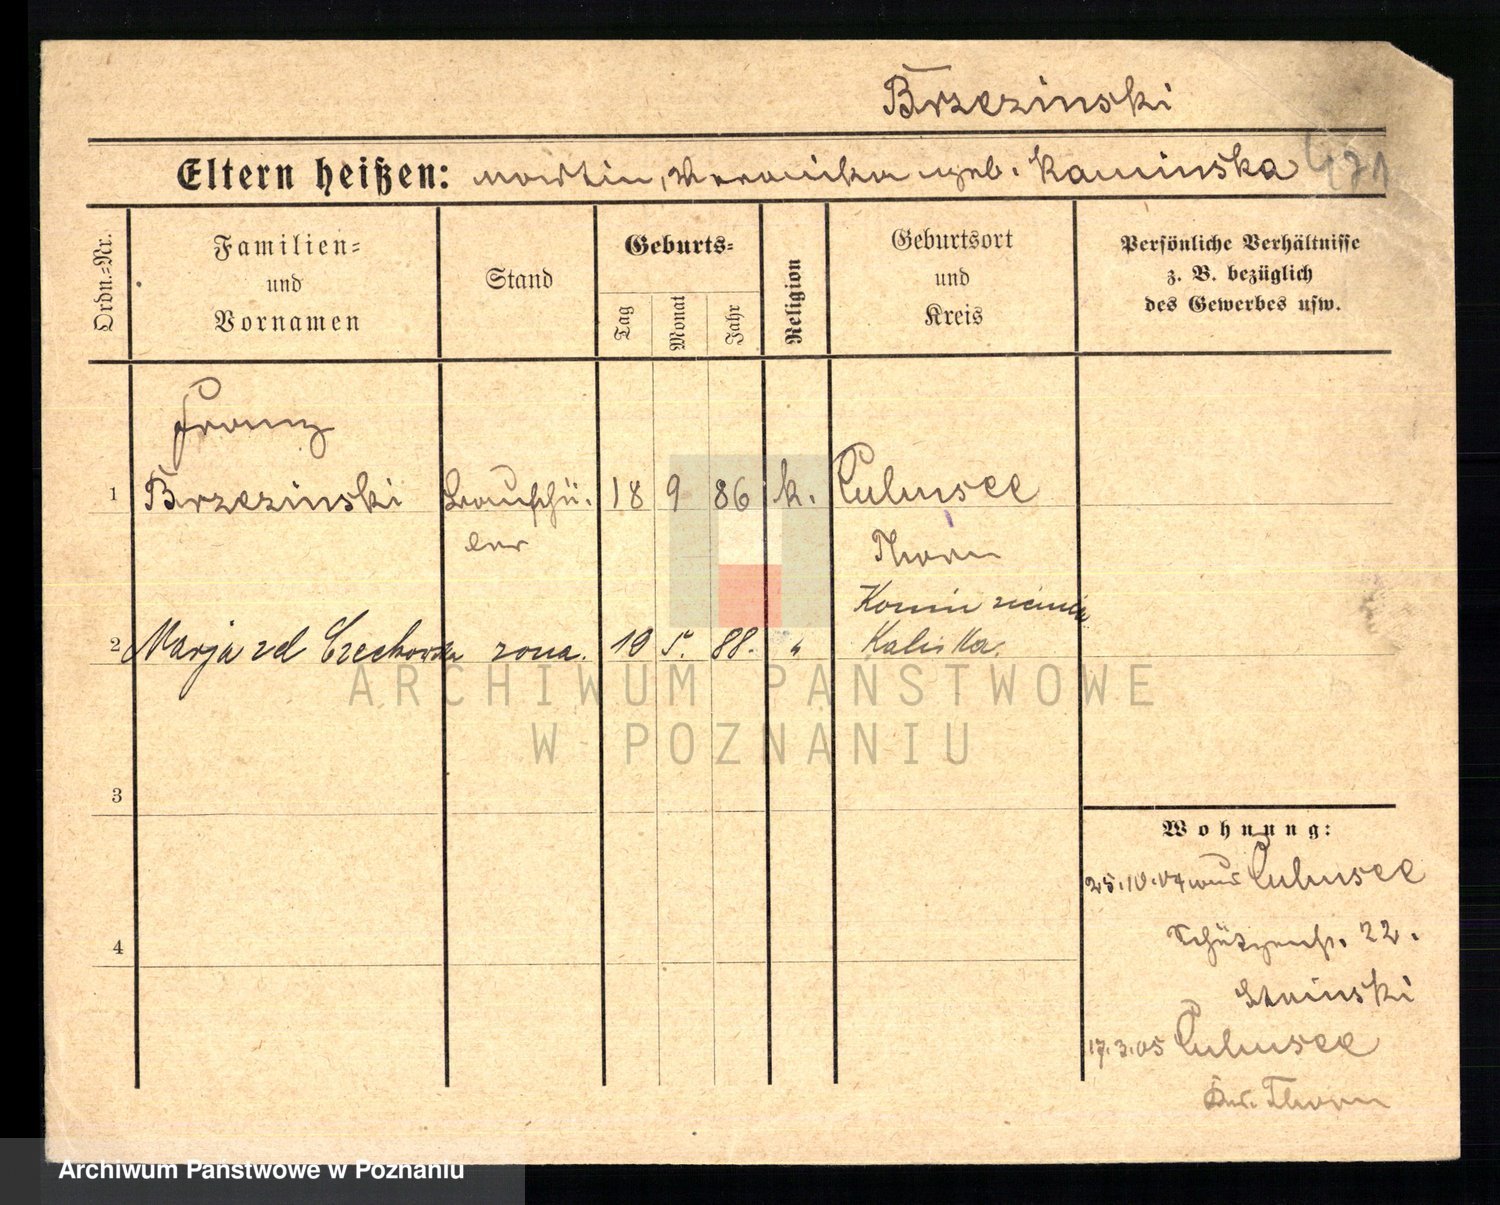 Brzezinski
Eltern heißen: Martin, Veronika geb. Kaminska
471
Ordn.-Nr.
Familien-
und
Vornamen
Stand
Geburts-
Tag
Monat
Jahr
Religion
Geburtsort
und
Kreis
Persönliche Verhältnisse
z. B. bezüglich
des Gewerbes usw.
Franz
1 Brzezinski Bauschü- 18 9 86 k. Culmsee
ler Thorn
2 Marja zd Czechowska zona. 19 5. 88. "
Kaliska.
3
4
Wohnung:
25.10.04 aus Culmsee
Schützenstr. 22.
17.3.05 Culmsee
Krs. Thorn
ARCHIWUM PAŃSTWOWE
W POZNANIU
Archiwum Państwowe w Poznaniu